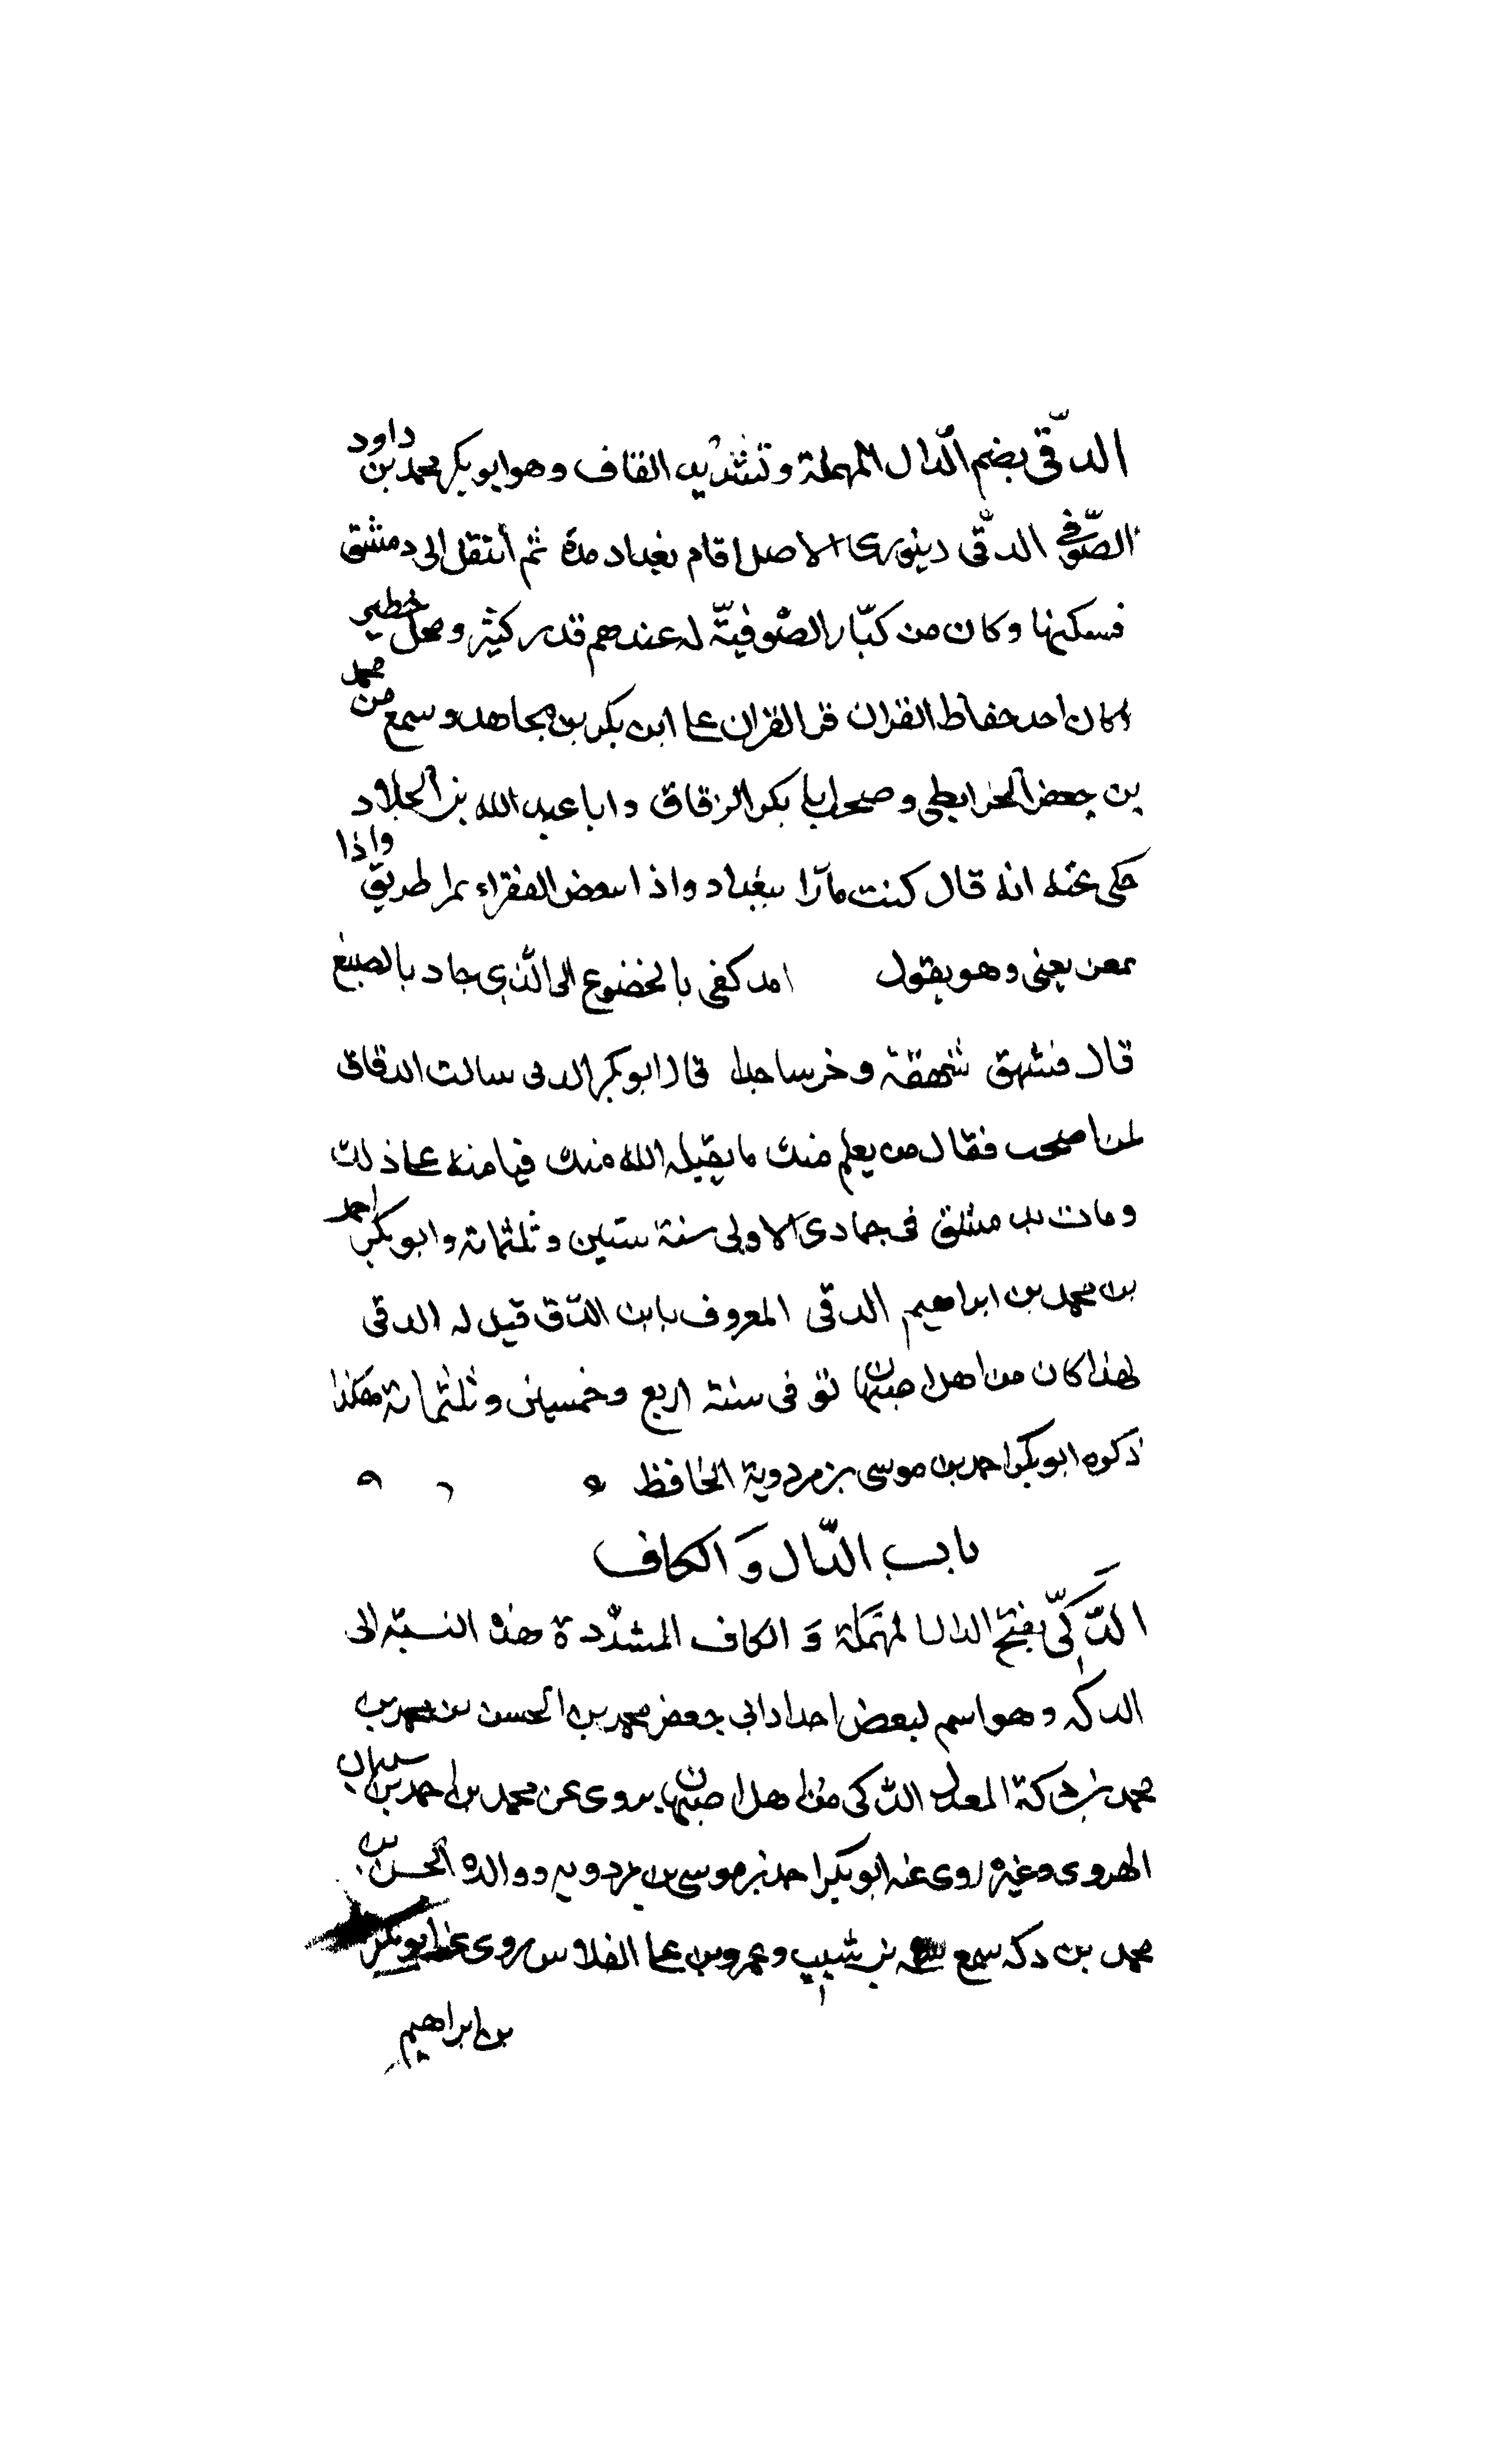 الدّقّى بضم الدّال المهملة وتشديد القاف وهو ابو بكر محمد بن داود
الصّوفى الدقّى دينورى الاصل اقام ببغداد مدة ثم أنتقل الى دمشق
فسكنها وكان من كبّار الصّوفيّة له عندهم قدر كثير ومحل خطير
وكان احد حفاظ القران قرا القران على ابن بكر بن مجاهد وسمع من محمد
بن جعفر الخرايطى وصحب ابا بكر الزقاق وابا عبد الله بن الجلاود
حكى عنه انه قال كنت مارّا ببغداد واذا بعض الفقراء يمر طريق واذا
يعنى وهو يقول امد كفى بالخضوع الى الّذى جاد بالصنيع
قال فشهق شهقة وخر ساجدا قال ابو بكر الدقى سالت الدقاق
لمن اصحب فقال من يعلم منك ما يقبله الله منك على ذلك
ومات بدمشق فى جمادى الاولى سنة ستين وثلثمائة وابو بكر احمد
بن محمد بن ابراهيم الدقى المعروف بابن الدّق قيل له الدقى
لهذا كان من اهل اصبهان توفى سنة اربع وخمسين وثلثمائة هكذا
ذكره ابو بكر احمد بن موسى بن مردوية الحافظ ه
باب الدّال وَالكاف
الدَّكّى بفتح الدال المهملة وَالكاف المشدّدة هذه النسبة الى
الدكه وهو اسم لبعض اجداد ابى جعفر محمد بن الحسن بن محمد بن
محمد بن دكة المعدل الدّكى من اهل اصبهان يروى عن محمد بن احمد بن سليمان
الهروى وغيره روى عنه ابو بكر احمد بن موسى بن مردويه ووالده الحسن بن
محمد بن دكه سمع بن شبيب وعمرو بن على الفلاس روى عنه ابو بكر
بن ابراهيم